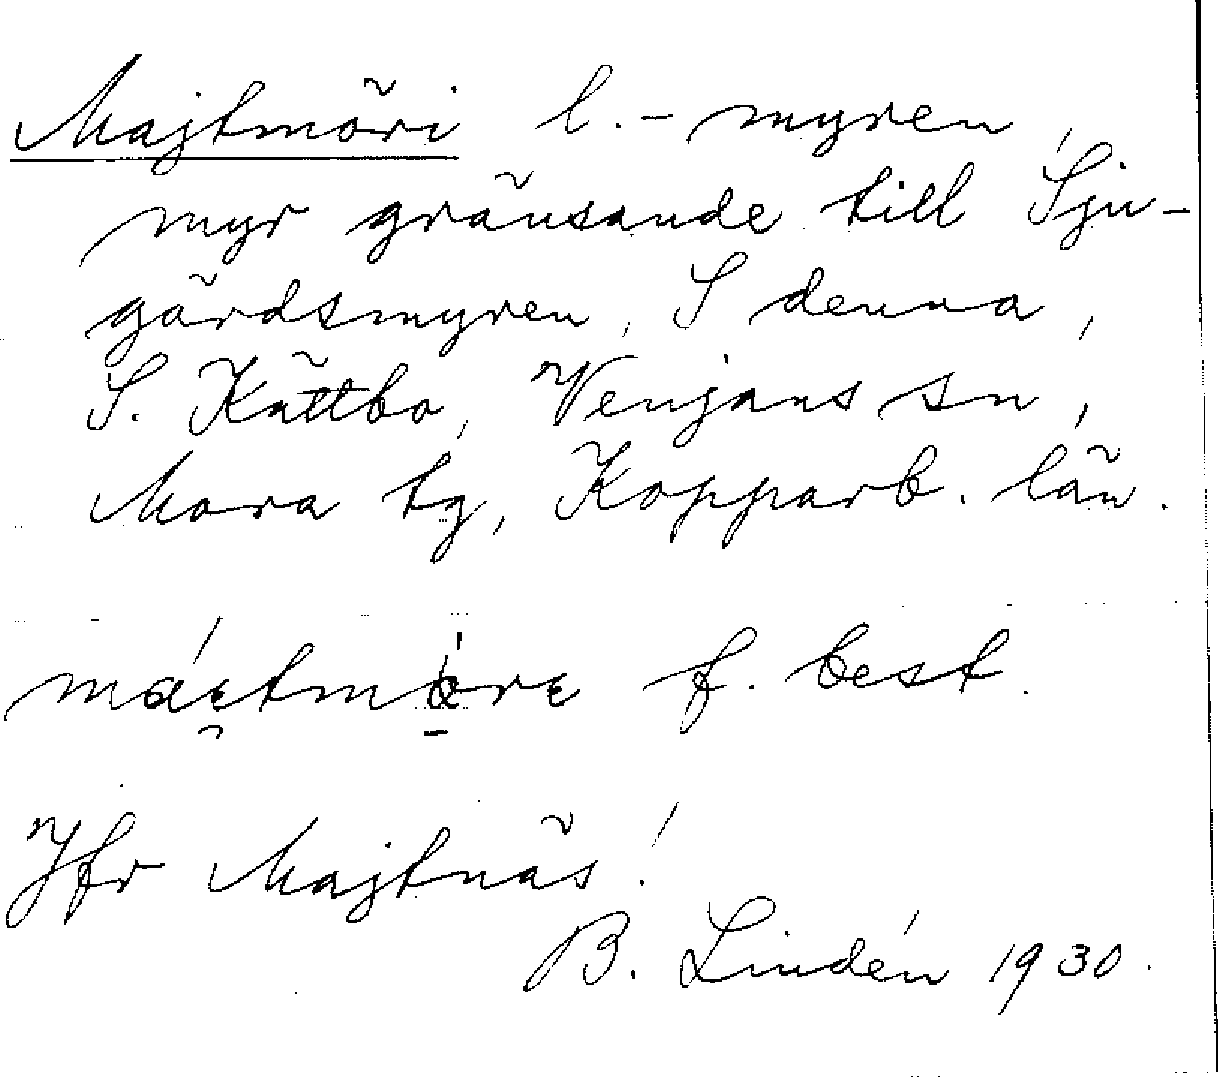 Majtmöri l. -myren,
myr gränsande till Sju-
gärdsmyren, S denna,
S. Kättbo, Venjans sn,
Mora tg, Kopparb. län.
f. best.
Jfr Majtnäs!
B. Lindén 1930.